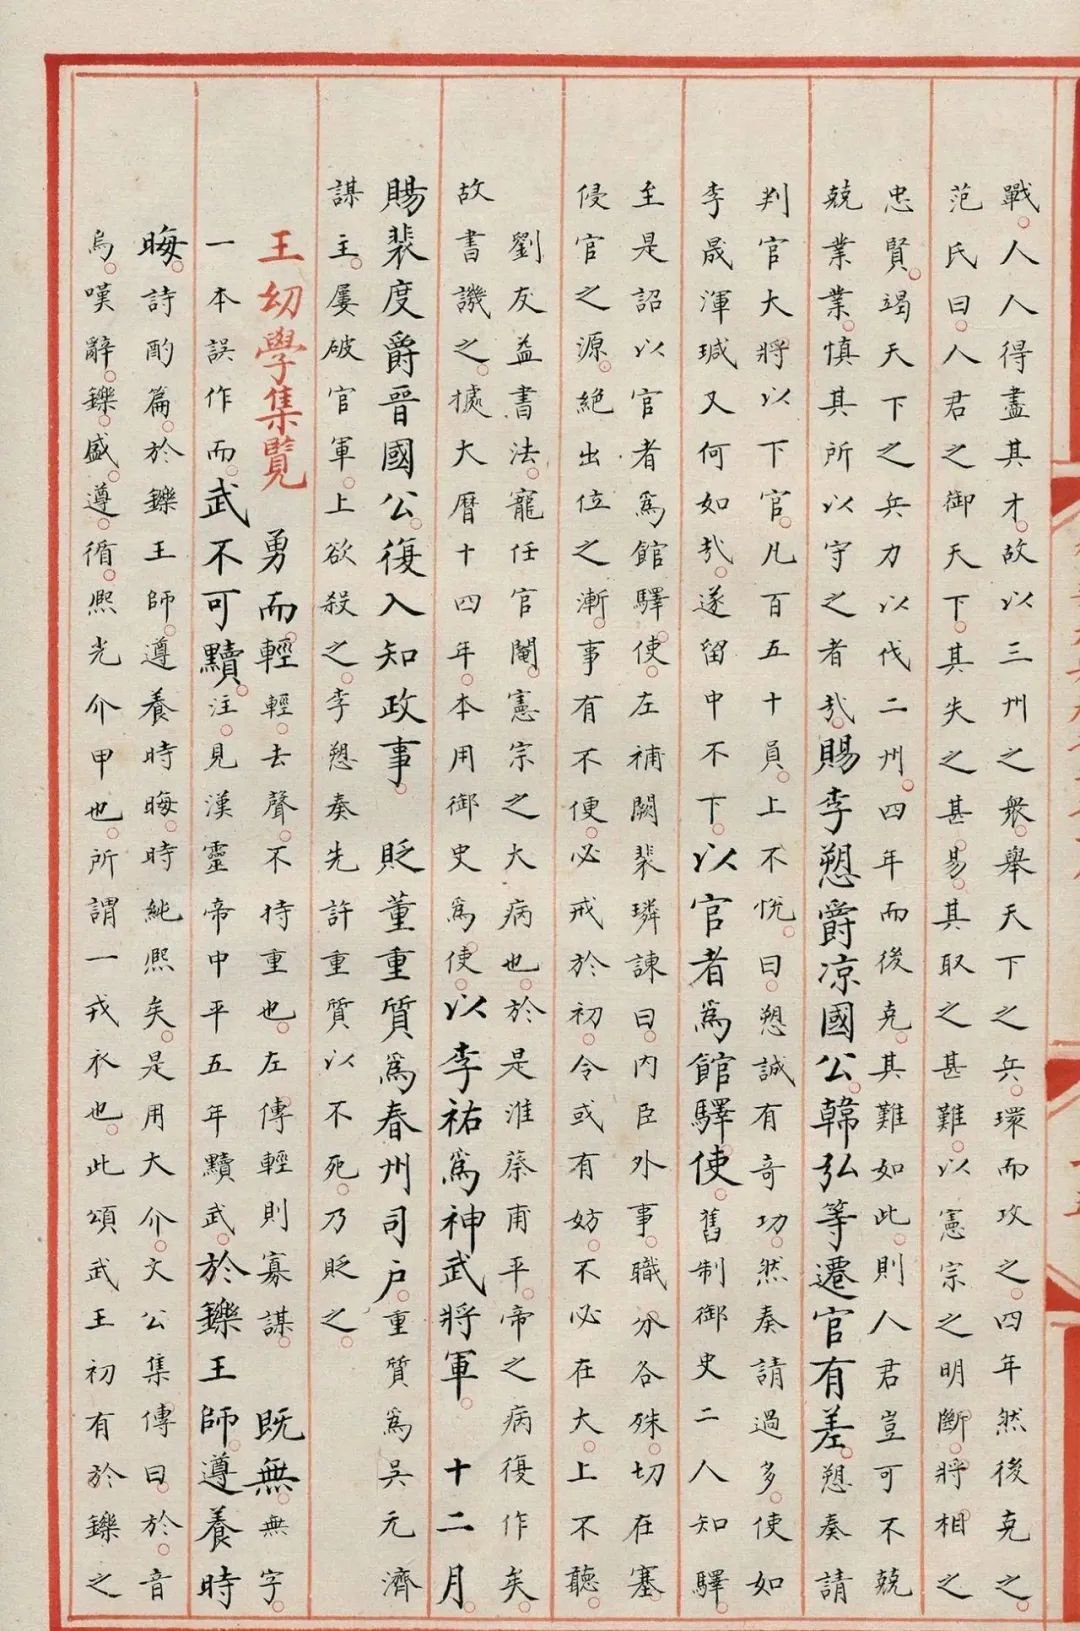 戰人人得盡其才故以三州之衆舉天下之兵環而攻之四年然後克之
范氏曰人君之御天下其失之甚易其取之甚難以憲宗之明斷將相之
忠賢竭天下之兵力以伐二州四年而後克其難如此則人君豈可不兢
兢業業慎其所以守之者哉賜李愬爵凉國公韓弘等遷官有差愬奏請
判官大將以下官凡百五十員上不悅曰愬誠有奇功然奏請過多使如
李晟渾瑊又何如哉遂留中不下以官者爲館驛使舊制御史二人知驛
至是詔以官者爲館驛使左補闕裴璘諫曰内臣外事職分各殊切在塞
侵官之源絶出位之漸事有不便必戒於初令或有妨不必在大上不聽
劉友益書法寵任官閹憲宗之大病也於是淮蔡甫平帝之病復作矣
故書譏之據大曆十四年本用御史爲使以李祐爲神武將軍 十二月
賜裴度爵晉國公復入知政事 貶董重質爲春州司户重質爲吳元濟
謀主屢破官軍上欲殺之李愬奏先許重質以不死乃貶之
王幼學集覽 勇而輕輕去聲不持重也左傳輕則寡謀 既無無字
一本誤作而武不可黷注見漢靈帝中平五年黷武於鑠王師遵養時
晦詩酌篇於鑠王師遵養時晦時純熙矣是用大介文公集傳曰於音
烏嘆辭鑠盛遵循熙光介甲也所謂一戎衣也此頌武王初有於鑠之